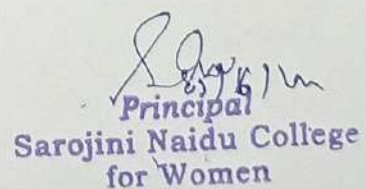 Principal
Sarojini Naidu College
for Women